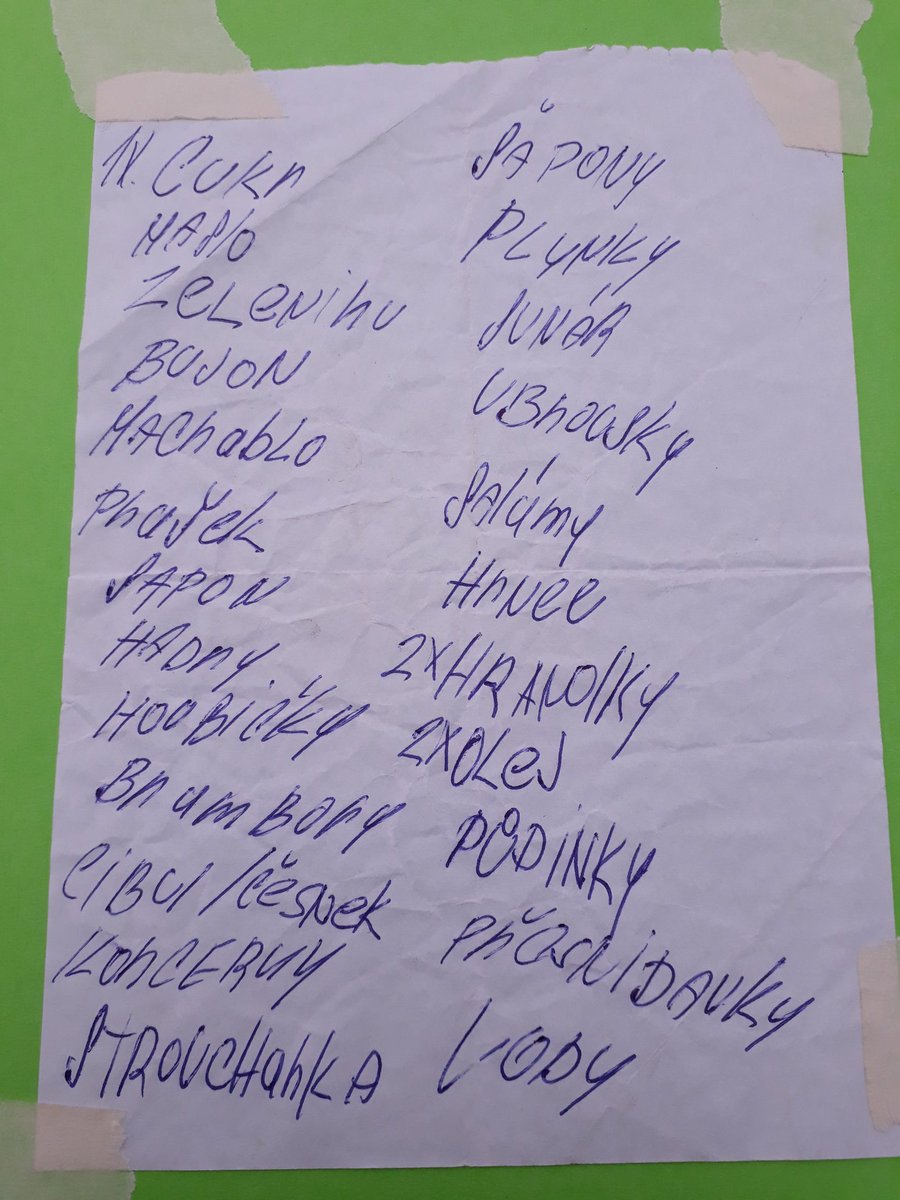 1X. CUKR
MASlO
ZeLeNiNU
BUJON
MACRabLO
PRaŠek
SAPON
HADRY
HOUBIČKY
BRamBORY
CIBUl/Česnek
KONCERVY
STROUCHaNKA
ŠAPONY
PLYNKY
SUNÁR
UBROUSKY
SAlámy
HRNEC
2X HRANOlKY
2X OLeJ
PŮDINKY
PŘÍDAVKY
VODY